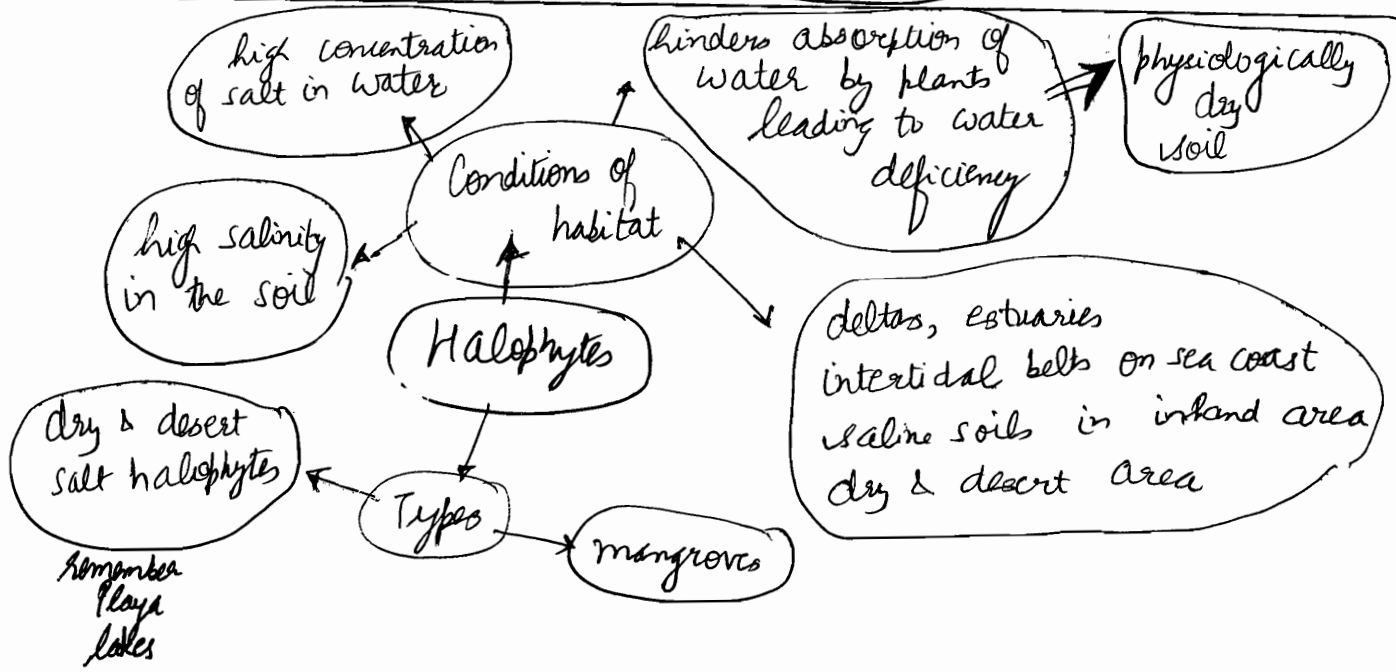 high concentration
of salt in water
hinders absorption of
water by plants
leading to water
deficiency
physiologically
dry
soil
Conditions of
habitat
high salinity
in the soil
Halophytes
deltas, estuaries
intertidal belts on sea coast
saline soils in inland area
dry & desert area
dry & desert
salt halophytes
Types
mangroves
remember
Playa
lakes